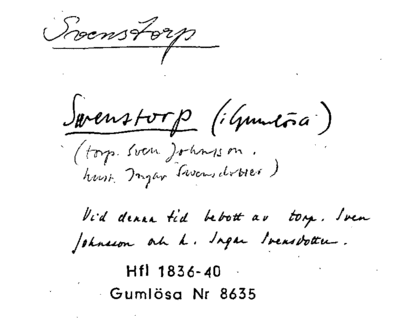 Svenstorp
Swenstorp (i Gumlösa)
(torp. Sven Johnsson.
hust. Ingar Swensdotter)
Vid denna tid bebott av torp. Sven
Johnsson och h. Ingar Svensdotter.
Hfl 1836-40
Gumlösa Nr 8635